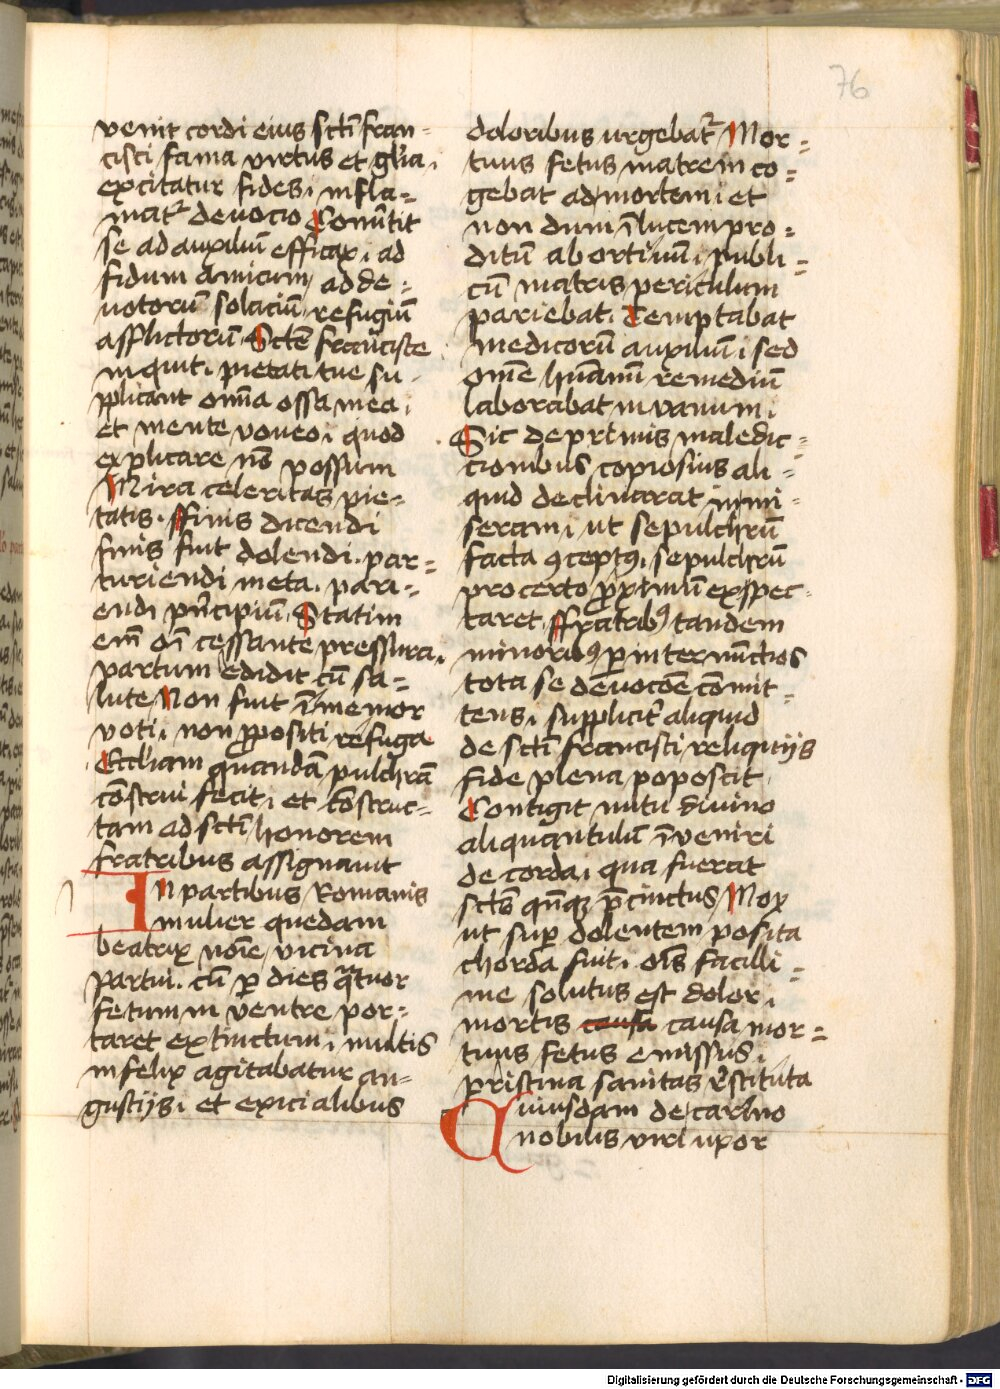 76
venit cordi eius scti fran=
cisci fama virtus et gl'ia.
excitatur fides. infla=
mat᷑ devocio Comītit
se ad auxiliū efficax. ad
fidum amicum, ad de=
uotorū solaciū. refugiū
afflictorū. Scte francisce
inquit. pietati tue su-
pplicant om̄a ossa mea.
et mente voveo. quod
explicare nō possum
Mira celeritas pie=
tatis. ffinis dicendi
finis fuit dolendi. par=
turiendi meta. pari=
endi prīcipiū. Statim
em̄ om̄i cessante pressura.
partum edidit cū sa=
lute Non fuit īmemor
voti. non ppositi refuga
Eccliam quandā pulchrā
cōstrui fecit. et cōstruc=
tam ad scti honorem
fratribus assignavit
In partibus Romanis
mulier quedam
beatrix noīe vicina
partui. cū p dies qtuor
fetum in ventre por=
taret extinctum. multis
infelix agitabatur an=
gustijs. et exicialibus
doloribus urgebat᷑ Mor=
tuus fetus matrem co=
gebat ad mortem. et
non dum ī lucem pro=
ditū abortiuū. publi=
cū matris periculum
pariebat. Temptabat
medicorū auxiliū. sed
om̄e humanū remediū
laborabat in vanum.
Sic de primis maledic=
cionibus copiosius ali=
quid declinarat in mi=
seram. ut sepulchrū
facta ꝯceptꝰ. sepulchrū
pro certo proximū exspec-
taret. ffratribꝰ tandem
minoribꝰ p internūctios
tota se deuocōe cōmit=
tens. supplicit᷑ aliquid
de scti francisci reliquijs
fide plena poposcit
Contigit nutu divino
aliquantulū īveniri
de corda. qua fuerat
sctūs qn̄qꝫ pcinctus. Mox
ut sup dolentem posita
chorda fuit. om̄s facilli=
me solutus est dolor.
mortis causa causa mor=
tuus fetus emissus.
pristina sanitas rstituta
Cuiusdam de carbio
nobilis viri uxor
Digitalisierung gefördert durch die Deutsche Forschungsgemeinschaft - DFG